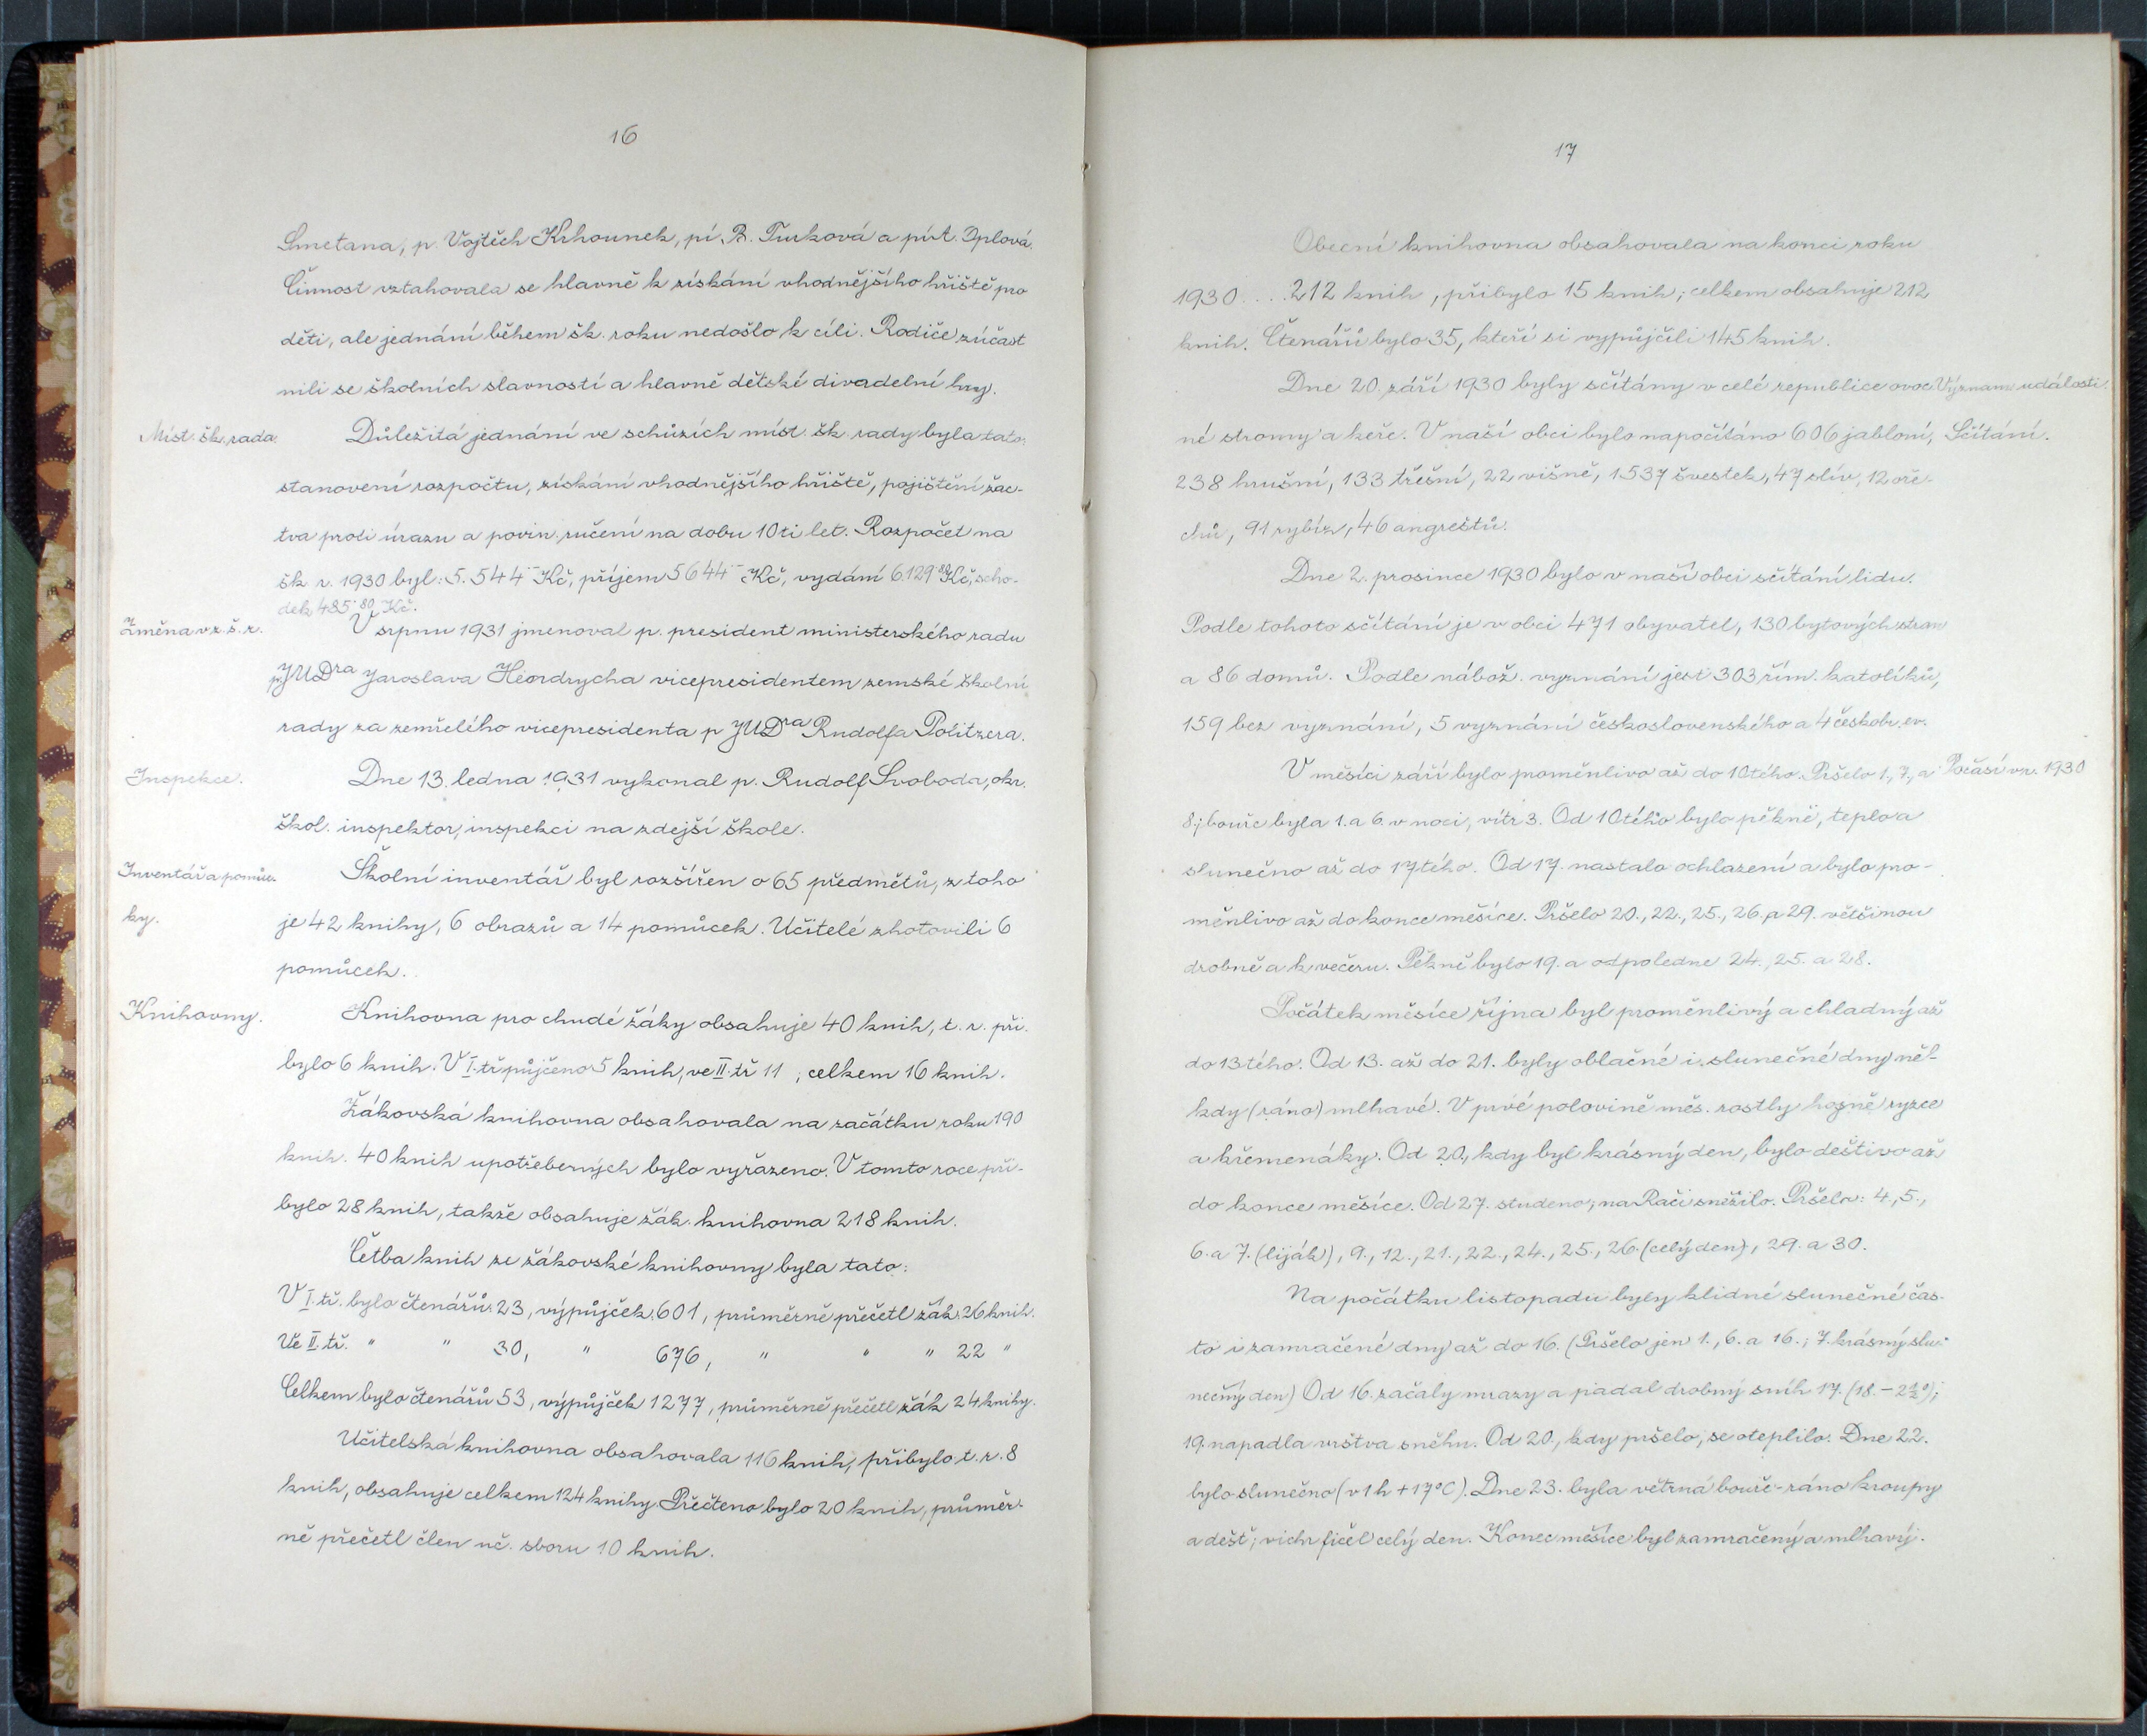 16
Smetana, p. Vojtěch Krhounek, pí. B. Turková a pí A. Dplová.
Činnost vztahovala se hlavně k získání vhodnějšího hřiště pro
děti, ale jednání během šk. roku nedošlo k cíli. Rodiče zúčast
nili se školních slavností a hlavně dětské divadelní hry.
Míst. šk. rada. Důležitá jednání ve schůzích míst. šk. rady byla tato:
stanovení rozpočtu, získání vhodnějšího hřiště, pojištění žac-
tva proti úrazu a povin. ručení na dobu 10ti let. Rozpočet na
šk r. 1930 byl: 5.544·- Kč, příjem 5644·- Kč, vydání 6.129·80 Kč, scho-
dek 485·80 Kč.
Změna v z. š. r. V srpnu 1931 jmenoval p. president ministerského radu
p. JUDra Jaroslava Heordrycha vicepresidentem zemské školní
rady za zemřelého vicepresidenta p JUDra Rudolfa Politzera.
Inspekce. Dne 13. ledna 1931 vykonal p. Rudolf Svoboda, okr.
škol. inspektor, inspekci na zdejší škole.
Inventář a pomůc- Školní inventář byl rozšířen o 65 předmětů, z toho
ky. je 42 knihy, 6 obrazů a 14 pomůcek. Učitelé zhotovili 6
pomůcek.
Knihovny. Knihovna pro chudé žáky obsahuje 40 knih, t. r. při-
bylo 6 knih. V I. tř půjčeno 5 knih, ve II. tř 11 ; celkem 16 knih.
Žákovská knihovna obsahovala na začátku roku 190
knih. 40 knih upotřebených bylo vyřazeno. V tomto roce při-
bylo 28 knih, takže obsahuje žák. knihovna 218 knih.
Četba knih ze žákovské knihovny byla tato:
V I. tř. bylo čtenářů 23, výpůjček 601, průměrně přečetl žák 26 knih.
Ve II. tř. " " 30, " 676, " " " 22 "
Celkem bylo čtenářů 53, výpůjček 1277, průměrně přečetl žák 24 knihy.
Učitelská knihovna obsahovala 116 knih, přibylo t. r. 8
knih, obsahuje celkem 124 knihy. Přečteno bylo 20 knih, průměr-
ně přečetl člen uč. sboru 10 knih.
17
Obecní knihovna obsahovala na konci roku
1930 .... 212 knih, přibylo 15 knih; celkem obsahuje 212
knih. Čtenářů bylo 35, kteří si vypůjčili 145 knih.
Dne 20. září 1930 byly sčítány v celé republice ovoc- Význam. události.
né stromy a keře. V naší obci bylo napočítáno 606 jabloní, Sčítání.
238 hrušní, 133 třešní, 22 višně, 1537 švestek, 47 slív, 12 oře-
chů, 91 rybíz, 46 angreštů.
Dne 2. prosince 1930 bylo v naší obci sčítání lidu.
Podle tohoto sčítání je v obci 471 obyvatel, 130 bytových stran
a 86 domů. Podle nábož. vyznání jest 303 řím. katolíků,
159 bez vyznání, 5 vyznání československého a 4 českobr. ev.
V měsíci září bylo proměnlivo až do 10tého. Pršelo 1., 7., a Počasí v r. 1930
8; bouře byla 1. a 6. v noci, vítr 3. Od 10tého bylo pěkně, teplo a
slunečno až do 17tého. Od 17. nastalo ochlazení a bylo pro-
měnlivo až do konce měsíce. Pršelo 20., 22., 25., 26. a 29. většinou
drobně a k večeru. Pěkně bylo 19. a odpoledne 24., 25. a 28.
Počátek měsíce října byl proměnlivý a chladný až
do 13tého. Od 13. až do 21. byly oblačné i slunečné dny, něk-
kdy (ráno) mlhavé. V prvé polovině měs. rostly hojně ryzce
a křemenáky. Od 20., kdy byl krásný den, bylo deštivo až
do konce měsíce. Od 27. studeno; na Rači sněžilo. Pršelo: 4., 5.,
6. a 7. (liják), 9., 12., 21., 22., 24., 25., 26. (celý den), 29. a 30.
Na počátku listopadu byly klidné slunečné čas-
to i zamračené dny až do 16. (Pršelo jen 1., 6. a 16.; 7. krásný slu-
nečný den) Od 16. začaly mrazy a padal drobný sníh 17. (18. - 2½°);
19. napadla vrstva sněhu. Od 20., kdy pršelo, se oteplilo. Dne 22.
bylo slunečno (v 1 h + 17°C). Dne 23. byla větrná bouře - ráno kroupy
a déšť; vichr fičel celý den. Konec měsíce byl zamračený a mlhavý.